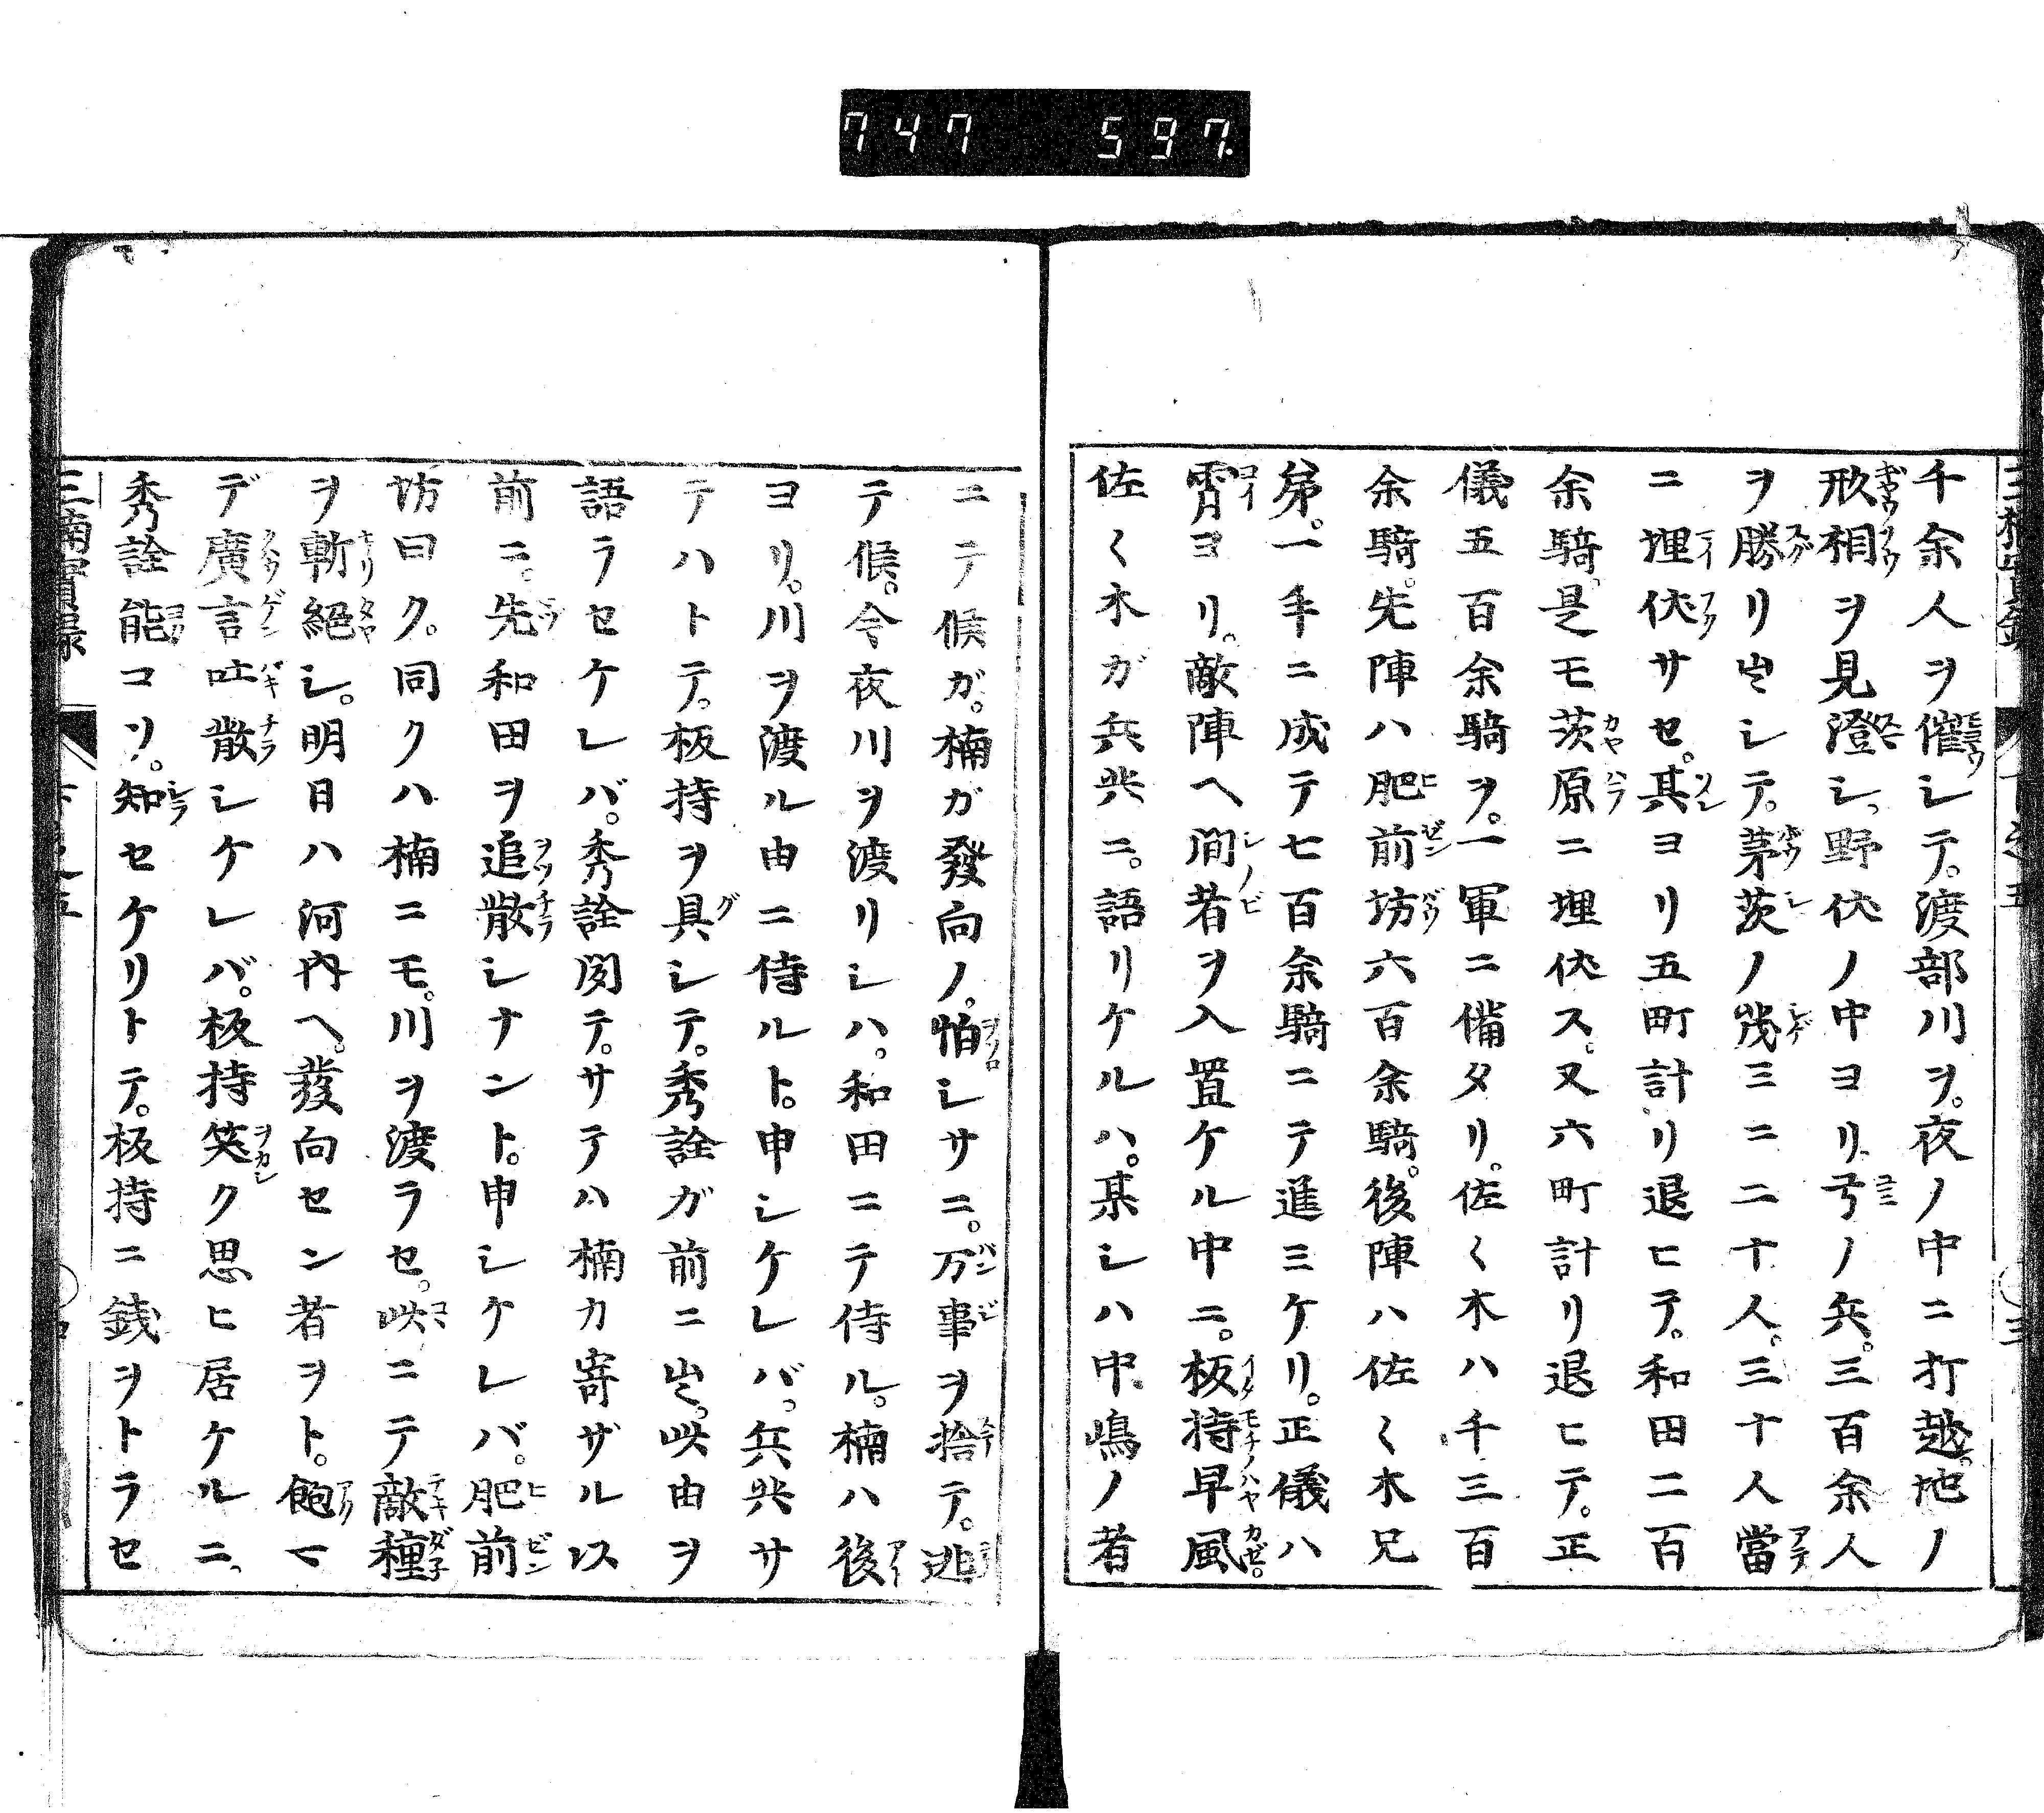 747 597.
千余人ヲ催シテ。渡部川ヲ。夜ノ中ニ打越。地ノ
形相ヲ見澄シ。野伏ノ中ヨリ。弓ノ兵。三百余人
ヲ勝リ出シテ。茅茨ノ茂ミニ二十人。三十人當
ニ埋伏サセ。其ヨリ五町計リ退ヒテ。和田二百
余騎。是モ茨原ニ埋伏ス。又六町計リ退ヒテ。正
儀五百余騎ヲ。一軍ニ備タリ。佐〱木ハ千三百
余騎。先陣ハ肥前坊六百余騎。後陣ハ佐〱木兄
弟。一手ニ成テ七百余騎ニテ進ミケリ。正儀ハ
霄ヨリ。敵陣ヘ間者ヲ入置ケル中ニ。板持早風
佐〱木ガ兵共ニ。語リケルハ。某シハ中嶋ノ者
ニテ候ガ。楠ガ發向ノ。怕シサニ。万事ヲ捨テ。逃
テ候。今夜川ヲ渡リシハ。和田ニテ侍ル。楠ハ後
ヨリ。川ヲ渡ル由ニ侍ルト。申シケレバ。兵共サ
テハトテ。板持ヲ具シテ。秀詮ガ前ニ出。此由ヲ
語ラセケレバ。秀詮聞テ。サテハ楠カ寄ザル以
前ニ。先和田ヲ追散シナント。申シケレバ。肥前
坊曰ク。同クハ楠ニモ。川ヲ渡ラセ。此ニテ敵種
ヲ斬絕シ。明日ハ河内ヘ。發向セン者ヲト。飽マ
デ廣言吐散シケレバ。板持笑ク思ヒ居ケルニ。
秀詮能コソ。知セケリトテ。板持ニ銭ヲトラセ